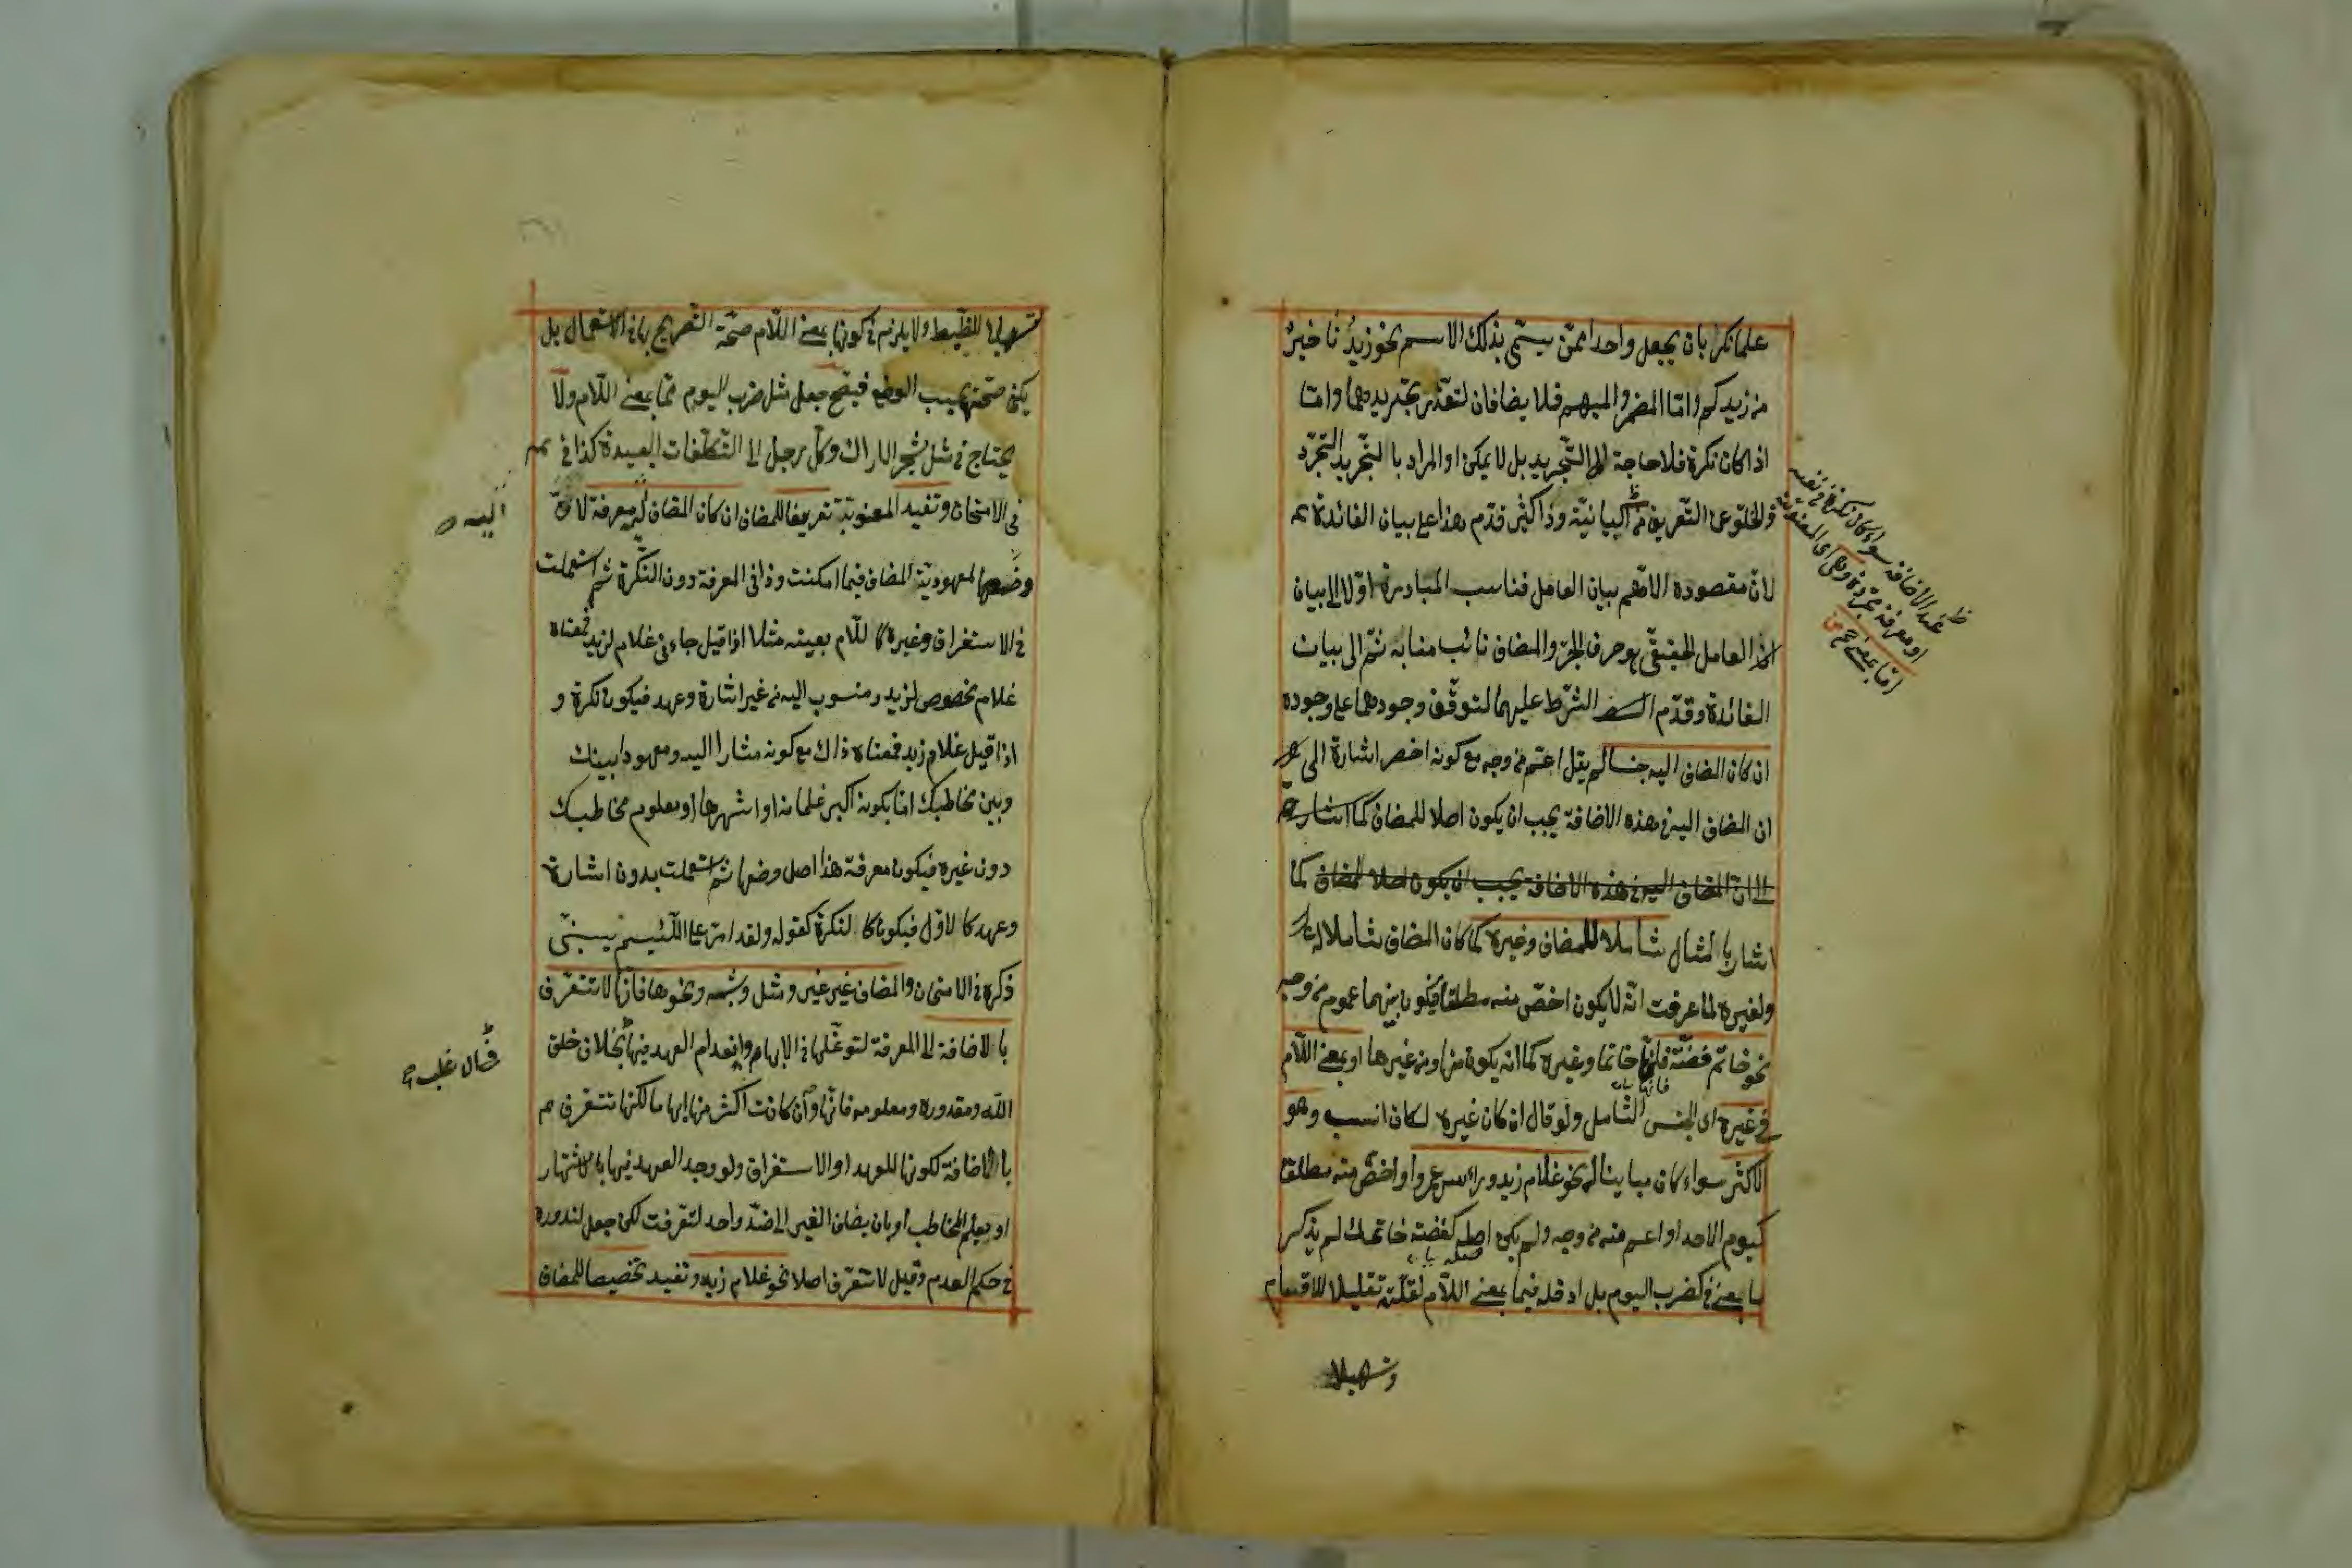 علما نكرا بان يجعل واحدا ممن يسمى بذلك الاسم نحو زيدنا خير
من زيدكم واما المضمر والمبهم فلا يضافان لتعذر تجريدهما واما
اذا كان نكرة فلا حاجة الى التجريد بل لا يمكن او المراد بالتجريد التجرد
والخلو عن التعريف من البيانية وذا كثير قدم هذا على بيان الفائدة
لان مقصوده الاهم بيان العامل فناسب المبادرة اولا الى بيان
ان العامل الحقيقى هو حرف الجر والمضاف نائب منابه ثم الى بيان
الفائدة وقدم الشرط عليهما لتوقف وجودهما على وجوده
ان كان المضاف اليه جنسا لم يقل اعم من وجه مع كونه اخصر اشارة الى
ان المضاف اليه فى هذه الاضافة يجب ان يكون اصلا للمضاف كما اشار
الى ان المضاف اليه فى هذه الاضافة يجب ان يكون اصلا للمضاف كما
اشار بالمثال شاملا للمضاف وغيره كما كان المضاف شاملا له
ولغيره لما عرفت انه لا يكون اخص منه مطلقا فيكون بينهما عموم من وجه
نحو خاتم فضة فانها خاتما وغيره كما انه يكون منها ومن غيرها او بمعنى اللام
فى غيره اى الجنس الشامل ولو قال ان كان غيره لكان انسب وهو
الاكثر سواء كان مباينا له نحو غلام زيد وراس عمرو او اخص منه مطلقا
كيوم الاحد او اعم منه من وجه ولم يكن اصله كفضة خاتمك لم يذكر
ما بمعنى فى كضرب اليوم بل ادخله فيما بمعنى اللام لقلته تقليلا للاقسام
وتسهيلا
عند الاضافة سواء كان نكرة فى نفسه
او معرفة مجردة وهى اى المعنوية
اما بمعنى من
تسهيلا للضبط ولا يلزم فى كونها بمعنى اللام صحة التصريح بها فى الاستعمال بل
يكفى صحتها بحسب الوضع فيصح جعل مثل ضرب اليوم مما بمعنى اللام ولا
يحتاج فى مثل شجر الاراك وكل رجل الى التكلفات البعيدة كذا فى
فى الامتحان وتفيد المعنوية تعريفا للمضاف ان كان المضاف اليه معرفة لان
وضعها لمعهودية المضاف فيما امكنت وذا فى المعرفة دون النكرة ثم استعملت
فى الاستغراق وغيره كاللام بعينه مثلا اذا قيل جاءنى غلام لزيد فمعناه
غلام مخصوص لزيد ومنسوب اليه من غير اشارة وعهد فيكون نكرة و
اذا قيل غلام زيد فمعناه ذاك مع كونه مشارا اليه ومعهودا بينك
وبين مخاطبك اما بكونه اكبر غلمانه او اشهرها او معلوم مخاطبك
دون غيره فيكون معرفة هذا اصل وضعها ثم استعملت بدون اشارة
وعهد كالاول فيكون كالنكرة كقوله ولقد امر على اللئيم يسبنى
ذكره فى الامتحان والمضاف غير غير ومثل وشبه ونحوها فانها لا تتعرف
بالاضافة الى المعرفة لتوغلها فى الابهام وانعدام العهد فيها بخلاف خلق
الله ومقدوره ومعلومه فانها وان كانت اكثر منها ابهاما لكنها تتعرف
بالاضافة لكونها للعهد او الاستغراق ولو وجد العهد فيها بالاشتهار
او بعلم المخاطب او بان يضاف الغير الى ضد واحد لتعرفت لكن جعل لندوره
فى حكم العدم وقيل لا تتعرف اصلا نحو غلام زيد وتفيد تخصيصا للمضاف
اليه